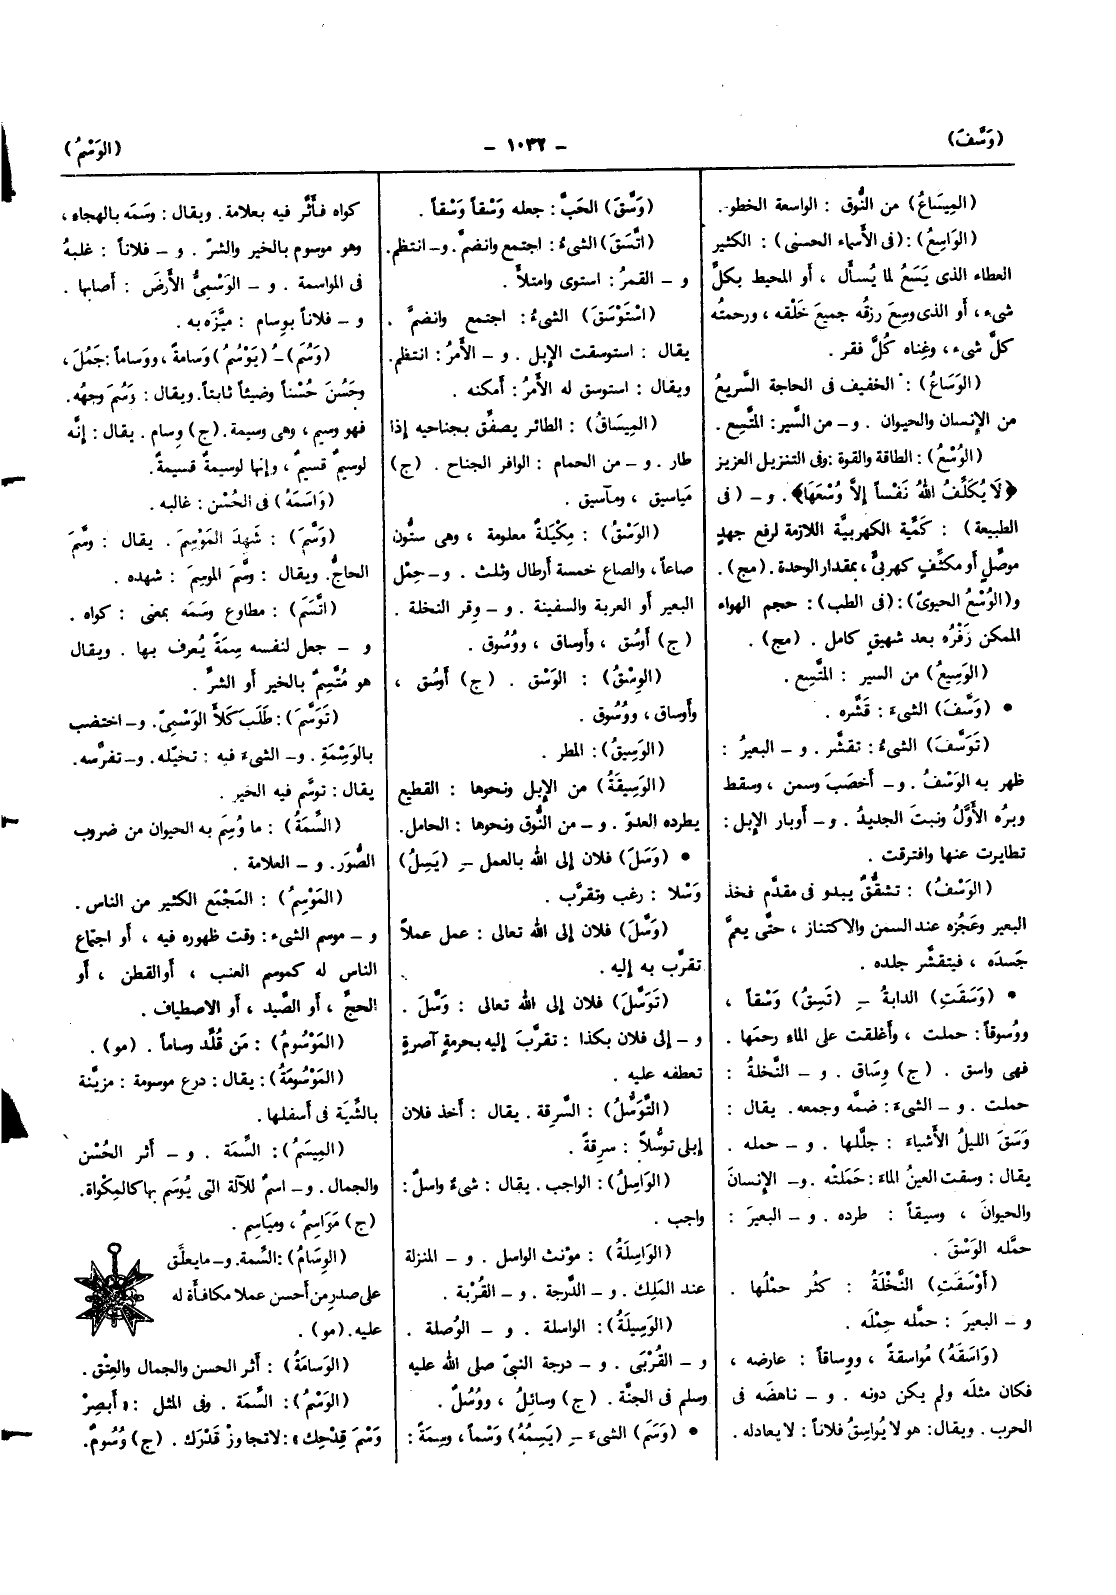 (وَسَّفَ)
– ١٠٣٢ –
(الوَسْمُ)
(المِيسَاعُ) من النُّوق : الواسعة الخطو.
(الوَاسِعُ) : (فى الأسماء الحسنى) : الكثير
العطاء الذى يَسَعُ لما يُسأَل ، أو المحيط بكلِّ
شىء ، أو الذى وسِعَ رزقُه جميعَ خلْقه ، ورحمتُه
كلَّ شىء ، وغِناه كُلَّ فقر .
(الوَسَاعُ) : الخفيف فى الحاجة السَّريعُ
من الإنسان والحيوان . و – من السَّير : المتَّسِع .
(الوُسْعُ) : الطاقة والقوة : وفى التنزيل العزيز
﴿لَا يُكَلِّفُ اللهُ نَفْساً إلاَّ وُسْعَهَا﴾ . و – (فى
الطبيعة) : كَمِّية الكهربيَّة اللازمة لرفع جهدٍ
موصِّلٍ أو مكثِّفٍ كهربىٍّ ، بمقدار الوحدة . (مج) .
و(الوُسْعُ الحيوىّ) : (فى الطب) : حجم الهواء
الممكن زَفْرُه بعد شهيقٍ كامل . (مج) .
(الوَسِيعُ) من السير : المتَّسِع .
• (وَسَّفَ) الشىءَ : قَشَّره .
(تَوَسَّفَ) الشىءُ : تقشَّر . و – البعيرُ :
ظهر به الوَسْفُ . و – أخصَبَ وسمن ، وسقط
وبرُه الأَوَّلُ ونبتَ الجديدُ . و – أوبار الإبل :
تطايرت عنها وافترقت .
(الوَسْفُ) : تشقُّقٌ يبدو فى مقدَّم فخذ
البعير وعَجُزه عند السمن والاكتناز ، حتَّى يعمَّ
جَسدَه ، فيتقشَّر جلده .
• (وَسَقَتِ) الدابةُ –ِ (تَسِقُ) وَسْقاً ،
ووُسوقاً : حملت ، وأغلقت على الماءِ رحمَها .
فهى واسق . (ج) وِسَاق . و – النَّخلةُ :
حملت . و – الشىءَ : ضمَّه وجمعه . يقال :
وَسَقَ الليلُ الأشياءَ : جلَّلها . و – حمله .
يقال : وسقت العينُ الماءَ : حَمَلتْه . و – الإنسانَ
والحيوانَ ، وسيقاً : طرده . و – البعيرَ :
حمَّله الوَسْقَ .
(أوْسَقَتِ) النَّخْلَةُ : كثُر حمْلُها .
و – البعيرَ : حمَّله حِمْلَه .
(وَاسَقَهُ) مُواسقةً ، ووِساقاً : عارضه ،
فكان مثلَه ولم يكن دونه . و – ناهضَه فى
الحرب . ويقال : هو لا يُواسِقُ فلاناً : لا يعادله .
(وَسَّقَ) الحَبَّ : جعله وَسْقاً وَسْقاً .
(اتَّسَقَ) الشىءُ : اجتمع وانضمَّ . و – انتظم .
و – القمرُ : استوى وامتلأَ .
(اسْتَوْسَقَ) الشىءُ : اجتمع وانضمَّ .
يقال : استوسقت الإبل . و – الأمرُ : انتظم .
ويقال : استوسق له الأمرُ : أمكنه .
(المِيسَاقُ) : الطائر يصفِّق بجناحيه إذا
طار . و – من الحمام : الوافر الجناح . (ج)
مَياسيق ، ومآسيق .
(الوَسْقُ) : مِكْيَلةٌ معلومة ، وهى ستُّون
صاعاً ، والصاع خمسة أرطال وثلث . و – حِمْل
البعير أو العربة والسفينة . و – وِقر النخلة .
(ج) أوسُق ، وأوساق ، ووُسُوق .
(الوِسْقُ) : الوَسْق . (ج) أَوسُق ،
وأوساق ، ووُسُوق .
(الوَسِيقُ) : المطر .
(الوَسِيقَةُ) من الإبل ونحوها : القطيع
يطرده العدوّ . و – من النُّوق ونحوها : الحامل .
• (وَسَلَ) فلان إلى الله بالعمل –ِ (يَسِلُ)
وَسْلا : رغب وتقرَّب .
(وَسَّلَ) فلان إلى الله تعالى : عمل عملاً
تقرَّب به إليه .
(تَوَسَّلَ) فلان إلى الله تعالى : وَسَّلَ .
و – إلى فلان بكذا : تقرَّبَ إليه بحرمةٍ آصرةٍ
تعطفه عليه .
(التَّوَسُّلُ) : السَّرِقة . يقال : أخذ فلان
إبلى توسُّلاً : سرِقةً .
(الوَاسِلُ) : الواجب . يقال : شىءٌ واسلٌ :
واجب .
(الوَاسِلَةُ) : مؤنث الواسل . و – المنزلة
عند المَلِك . و – الدَّرجة . و – القُرْبة .
(الوَسِيلَةُ) : الواسلة . و – الوُصلة .
و – القُرْبَى . و – درجة النبىّ صلى الله عليه
وسلم فى الجنَّة . (ج) وسائِلُ ، ووُسُلٌ .
• (وَسَمَ) الشىءَ –ِ (يَسِمُهُ) وَسْماً ، وسِمَةً :
كواه فأَثَّر فيه بعلامة . ويقال : وسَمَه بالهجاء ،
وهو موسوم بالخير والشرّ . و – فلاناً : غلبهُ
فى المواسمة . و – الوَسْمِىُّ الأَرضَ : أصابها .
و – فلاناً بوِسام : ميَّزَه به .
(وَسُمَ) –ُ (يَوْسُمُ) وَسامةً ، ووَساماً : جَمُلَ ،
وحَسُنَ حُسْناً وضيئاً ثابتاً . ويقال : وَسُمَ وجهُه .
فهو وسيم ، وهى وسيمة . (ج) وِسام . يقال : إنَّه
لوسيمٌ قسيمٌ ، وإنها لوسيمةٌ قسيمةٌ .
(وَاسَمَهُ) فى الحُسْن : غالبه .
(وَسَّمَ) : شَهِدَ المَوْسِمَ . يقال : وسَّمَ
الحاجُّ . ويقال : وسَّمَ الموسِمَ : شهده .
(اتَّسَمَ) : مطاوع وسَمَه بمعنى : كواه .
و – جعل لنفسه سِمَةً يُعرف بها . ويقال
هو مُتَّسِمٌ بالخير أو الشرِّ .
(تَوَسَّمَ) : طَلَبَ كَلأَ الوَسْمِىّ . و – اختضب
بالوَسْمَةِ . و – الشىءَ فيه : تخيَّله . و – تفرَّسه .
يقال : توسَّم فيه الخير .
(السِّمَةُ) : ما وُسِمَ به الحيوان من ضروب
الصُّوَر . و – العلامة .
(المَوْسِمُ) : المَجْمَع الكثير من الناس .
و – موسم الشىء : وقت ظهوره فيه ، أو اجتماع
الناس له كموسم العنب ، أو القطن ، أو
الحجّ ، أو الصَّيد ، أو الاصطياف .
(المَوْسُومُ) : مَن قُلِّد وِساماً . (مو) .
(المَوْسُومَةُ) : يقال : درع موسومة : مزيَّنة
بالشِّيَة فى أسفلها .
(المِيسَمُ) : السِّمَة . و – أثر الحُسْن
والجمال . و – اسمٌ للآلة التى يُوسَم بها كالمِكْواة .
(ج) مَوَاسِمُ ، ومَيَاسِم .
(الوِسَامُ) : السِّمة . و – ما يعلَّق
على صدرِ من أحسن عملا مكافأة له
عليه . (مو) .
(الوَسَامَةُ) : أثر الحسن والجمال والعِتْق .
(الوَسْمُ) : السِّمَة . وفى المثل : « أَبصِرْ
وَسْمَ قِدْحِك » : لا تجاوزْ قَدْرَك . (ج) وُسُومٌ .